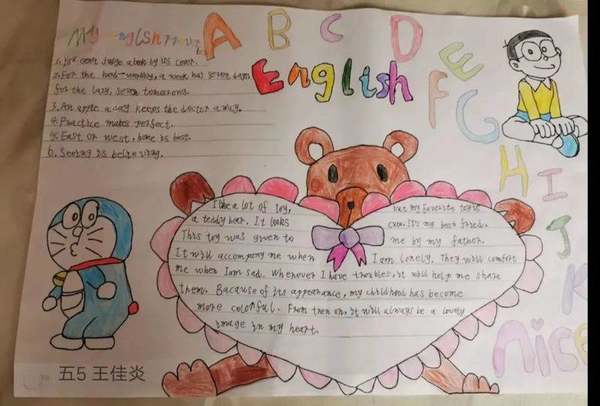 My English
A B C D E F G H I J K
English
1. don't judge a book by its cover.
2. For the hard-working, a week has seven days
for the lazy, seven tomorrows.
3. An apple a day keeps the doctor away.
4. Practice makes perfect.
5. East or west, home is best.
6. Seeing is believing.
I like a lot of toy, but my favourite toy is
a teddy bear. It looks It's my best friend.
This toy was given to me by my father.
It will accompany me when I am lonely. They will comfort
me when I am sad. Whenever I have troubles, it will help me share
them. Bacause of its appearance, my childhood has become
more colorful. From then on, it will always be a lovely
image in my heart.
nice
五5 王佳炎